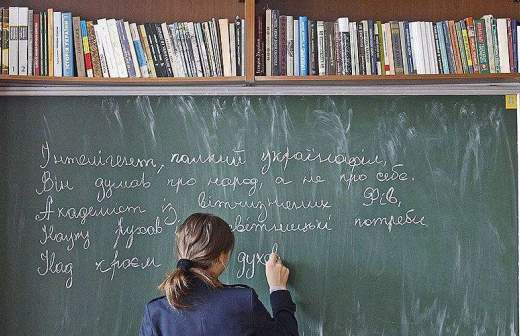 Інтелігент, палкий українофіл,
Він думав про народ, а не про себе.
Академист із вітчизнених Фів,
Науку рухав потреби
Над краєм духов